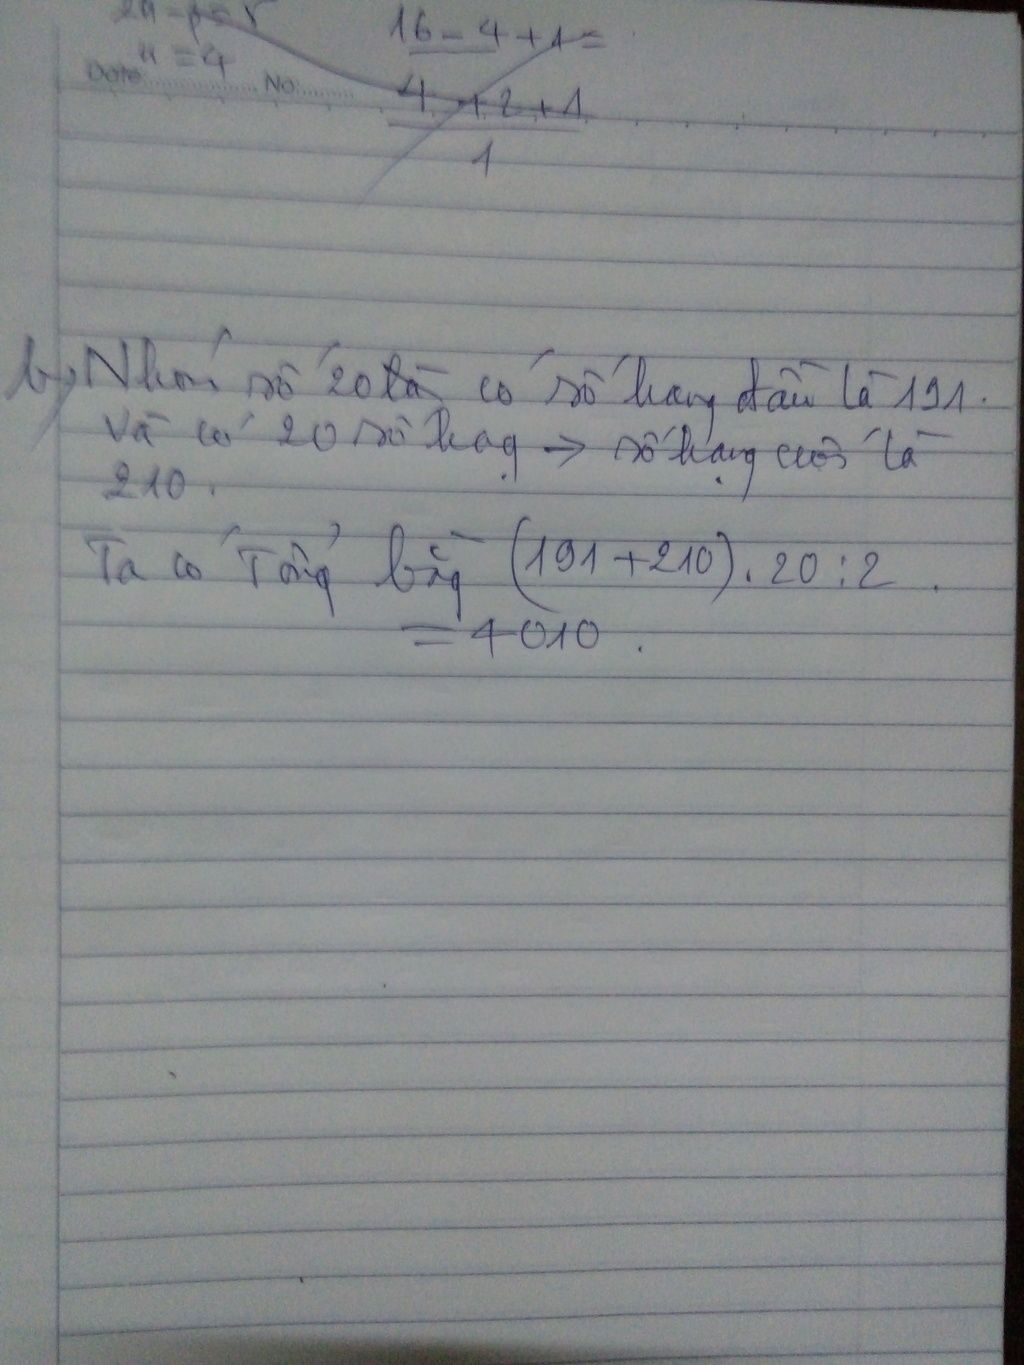 16 - 4 + 1 =
= 4
Date No:
4 + 2 + 1
1
b, Nhóm số 20 là có số hang đầu là 191.
Và có 20 số hạg → số hạng cuối là
210.
Ta có Tổng bằg (191 + 210) . 20 : 2 .
= 4010 .